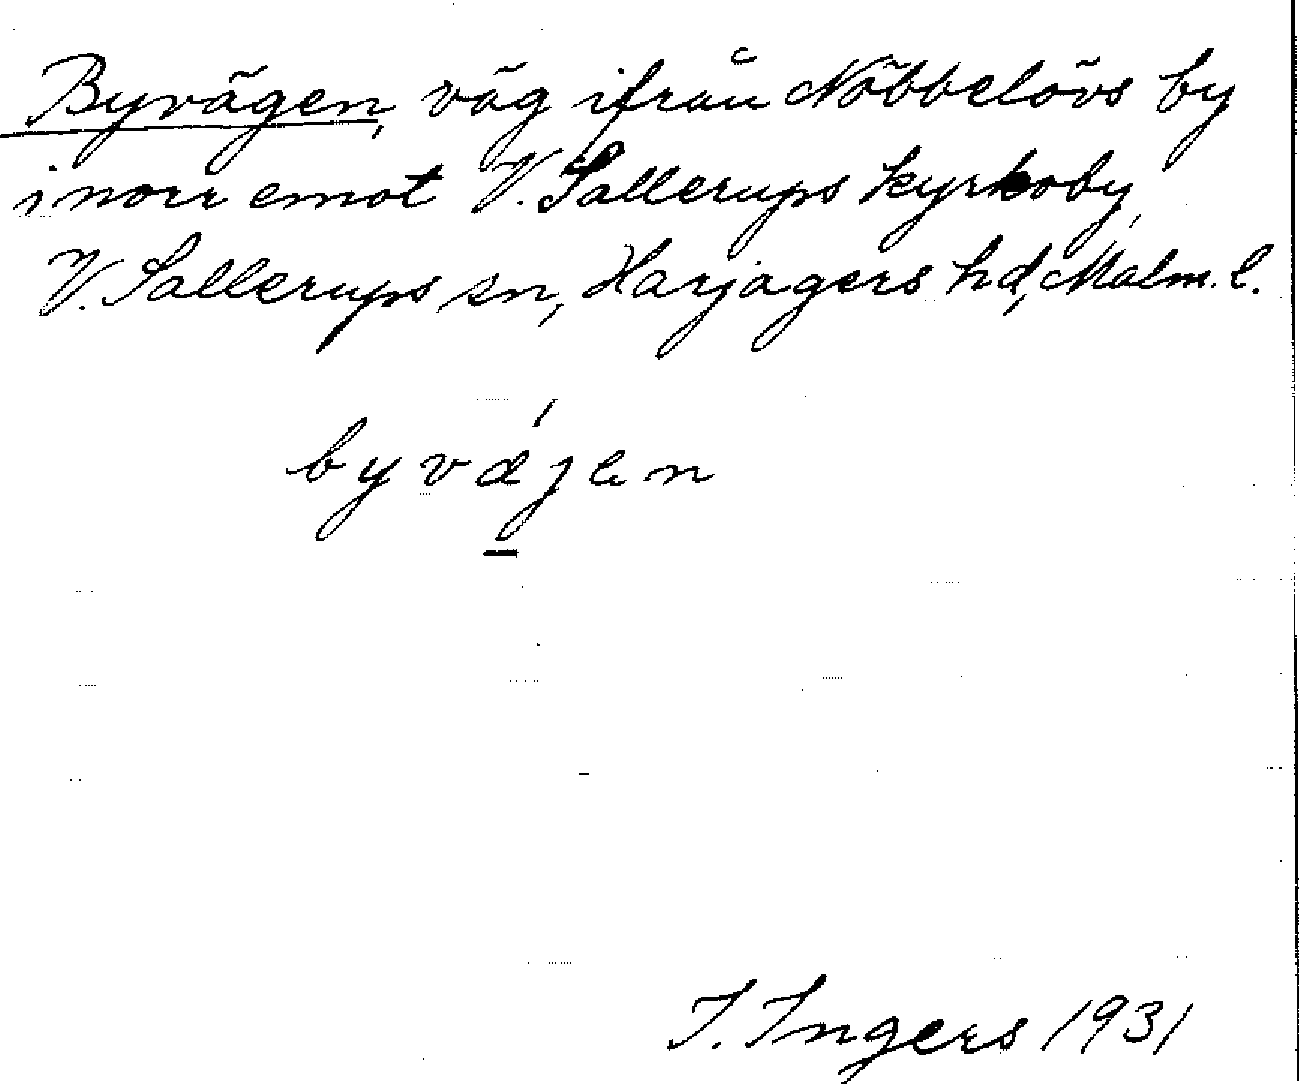 Byvägen, väg ifrån Nöbbelövs by
i norr emot V. Sallerups kyrkoby,
V. Sallerups sn, Harjagers hd, Malm. l.
byvæ´jen
I. Ingers 1931